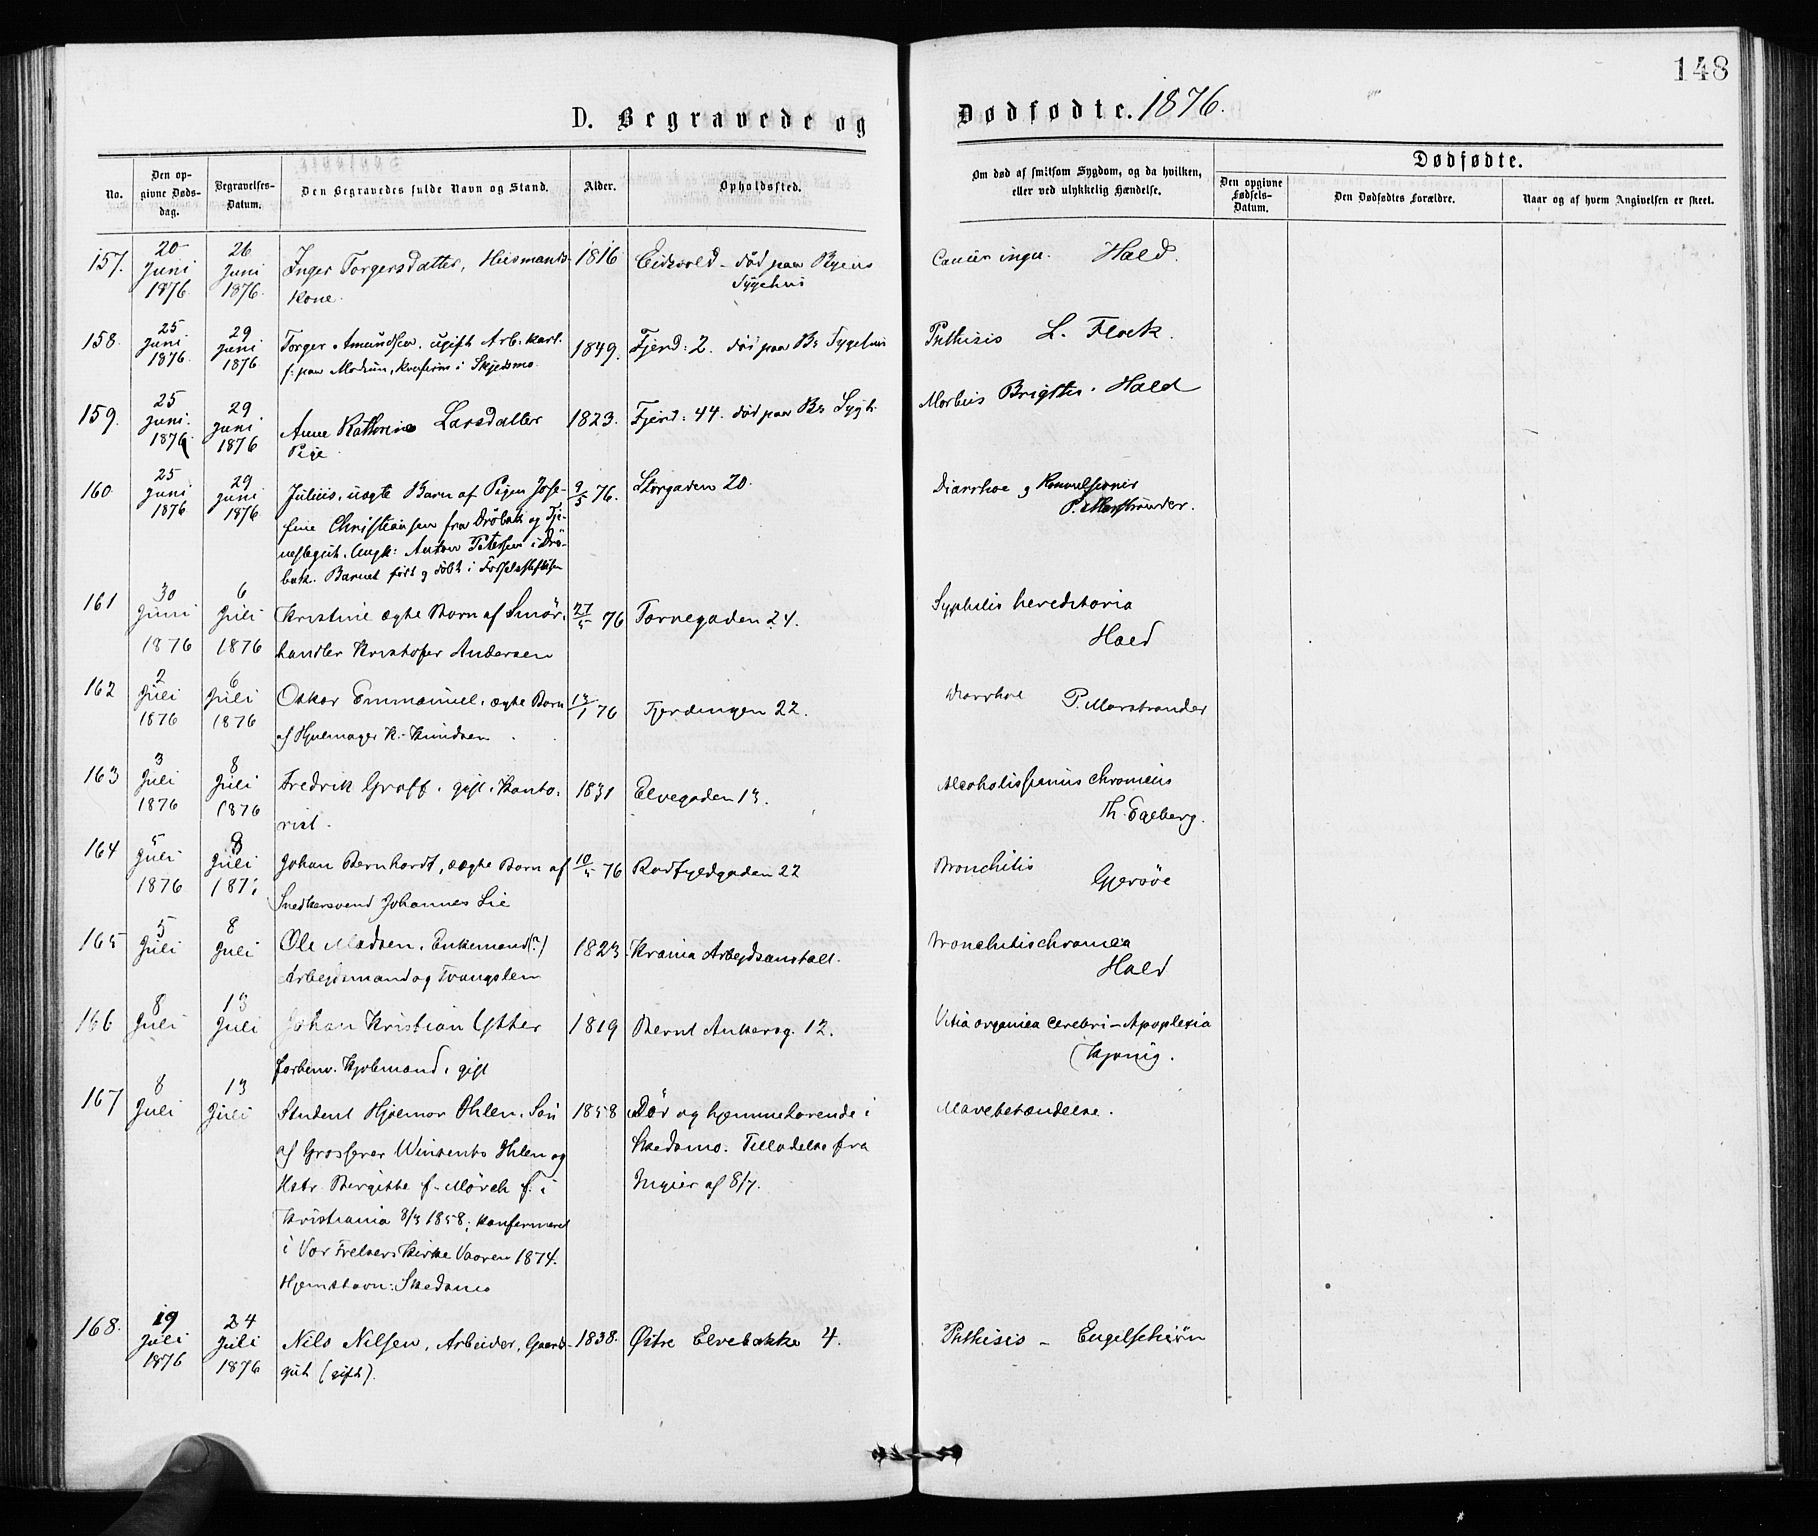 148
D. Begravede og Dødfødte. 1876.
No.
Den opgivne Dødsdag.
Begravelses-Datum.
Den Begravedes fulde Navn og Stand.
Alder.
Opholdssted.
Om død af smitsom Sygdom, og da hvilken, eller ved ulykkelig Hændelse.
Dødfødte.
Den opgivne Fødsels-Datum.
Den Dødfødtes Forældre.
Naar og af hvem Angivelsen er skeet.
157. 20 Juni 1876 26 Juni 1876. Inger Torgersdatter, Husmands- 1816 Eidsvold - død paa Byens Cancer Hald.
Kone. Sygehus
158. 25 Juni 1876 29 Juni 1876 Torger Amundsen, ugift Arb. karl. 1849. Fjerd: 2. død paa Bs Sygehus Phthisis L. Flock.
f. paa Modum, Konfirm i Skjedsmo
159. 25 Juni. 1876 29 Juni 1876 Anne Kathrine Larsdatter 1823. Fjerd: 44. død paa Bs Sygh. Morbus Brigthii. Hald
Pige.
160. 25 Juni 1876 29 Juni 1876 Julius, uægte Barn af Pigen Jose- 9/5 76. Storgaden 20. Diarrhoe og Konvulsioner
fine Christiansen fra Drøbak og Tje- P. Marstrander.
nestegut. Ungk: Anton Petersen i Drø-
bak. Barnet født og døbt i Fødselsstiftelsen
161 30 Juni 1876 6 Juli 1876 Kristine ægte Barn af Smør- 27/5 76 Tornegaden 24. Syphilis hereditaria
handler Kristofer Andersen Hald
162 2 Juli 1876 6 Juli 1876 Oskar Emmanuel, ægte Barn 13/1 76 Fjerdingen 22. Diarrhoe P. Marstrander
af Hjulmager K. Knudsen
163 3 Juli 1876 8 Juli 1876 Fredrik Groff, gift, Konto- 1831 Elvegaden 13. Alcoholismus chronicus
rist. Th. Egeberg.
164 5 Juli 1876 8 Juli 187 Johan Bernhardt, uægte Barn af 10/5 76 Rødfyldgaden 22 Bronchitis
Snedkersvend Johannes Lie Gjersøe
165 5 Juli 8 Juli Ole Madsen, Enkemand(?) 1823. Krania Arbejdsanstalt. Bronchitis chronica
Arbejdsmand og Tvangslem Hald
166 8 Juli 13 Juli Johan Kristian Ytter 1819 Bernt Ankersg. 12. Vitia organica cerebri - Apoplexia
forhenv. Kjolemand, gift
167 8 Juli 13 Juli Student Hjalmar Ohlen, Søn 1858 Død og hjemmehørende i Mavebetændelse.
af Grosserer Winsents Ohlen og Skedsmo. Tilladelse fra
Hstr Bergitte f. Mörch f. i af 8/7.
Kristiania 8/3 1858; konfirmeret
i Vor Frelsers Kirke Vaaren 1874.
Hjemstavn: Skedsmo
168. 19 Juli 1876 24 Juli 1876 Nils Nilsen, Arbeider, Gaards- 1838. Østre Elvebakke 4. Phthisis - Engelschiøn
gut (gift).